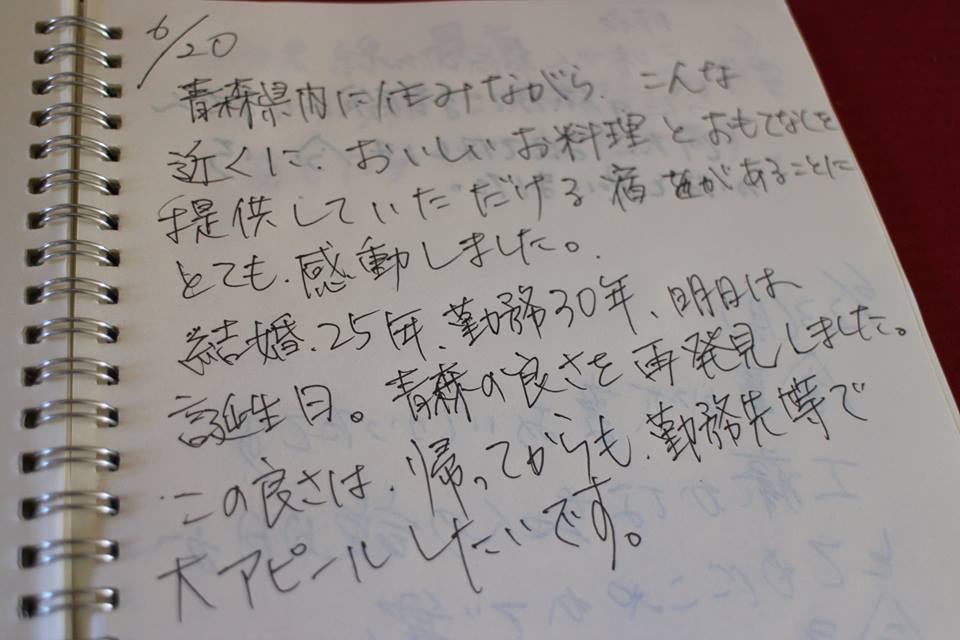 6/20
青森県内に住みながら、こんな
近くに、おいしいお料理とおもてなしを
提供していただける宿がある ことに
とても、感動しました。
結婚、25年、勤務30年、明日は
誕生日。青森の良さを再発見しました。
この良さは、帰ってからも、勤務先等で
大アピールしたいです。